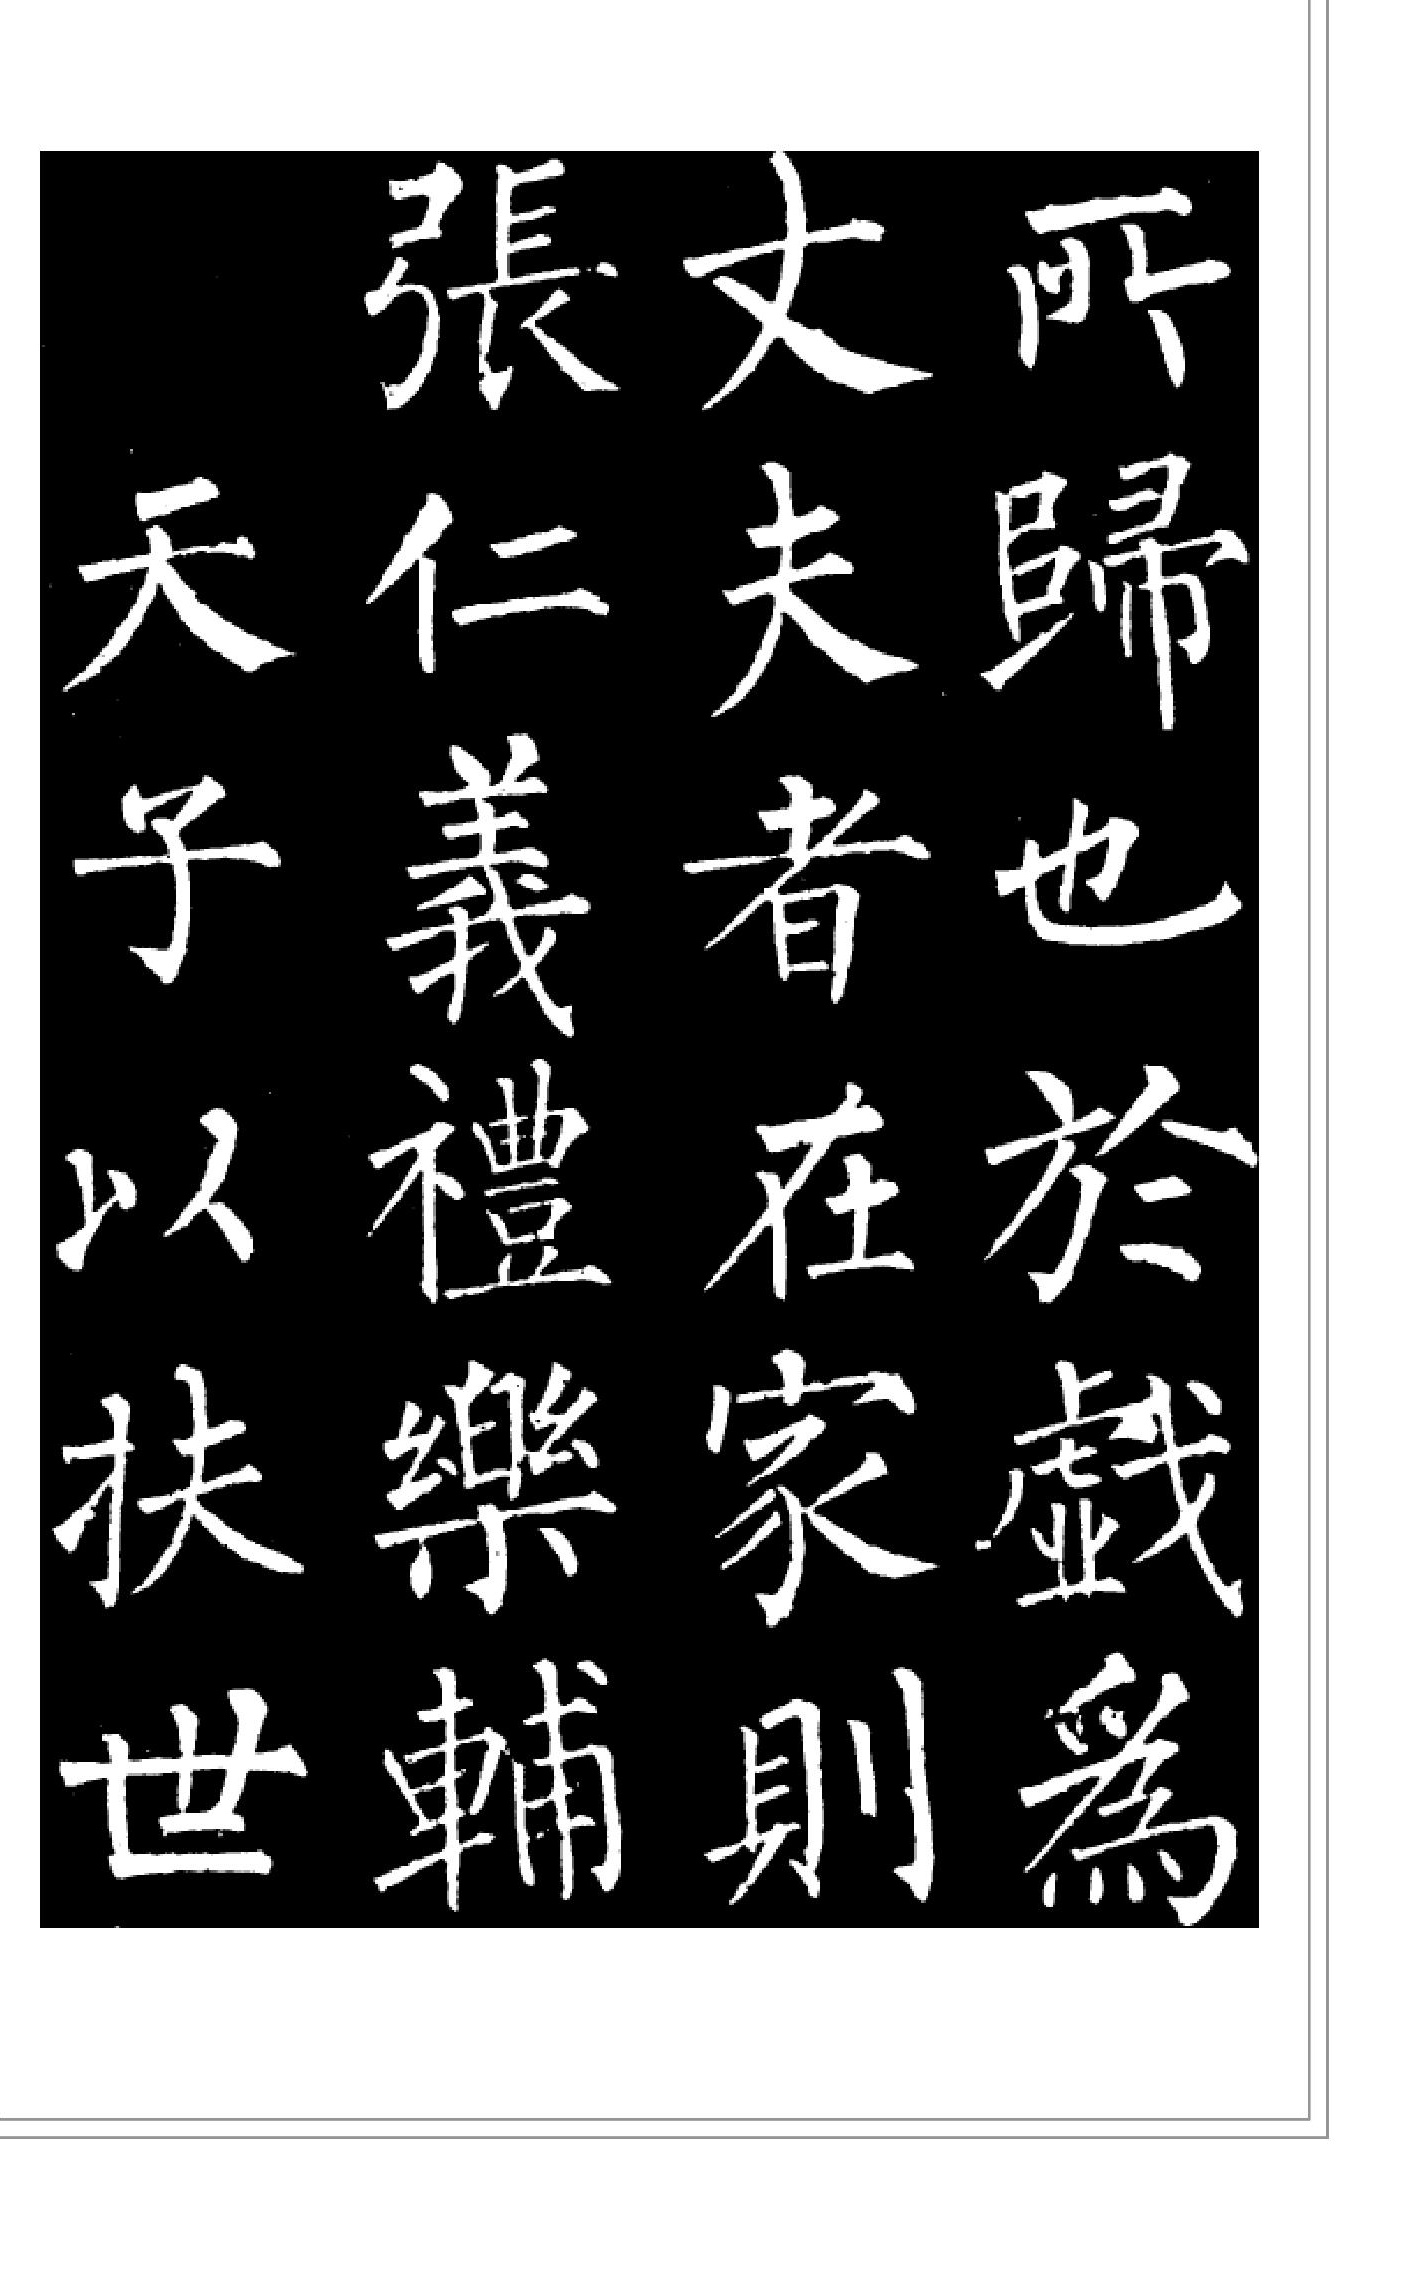 所歸也於戲爲
丈夫者在家則
張仁義禮樂輔
天子以扶世